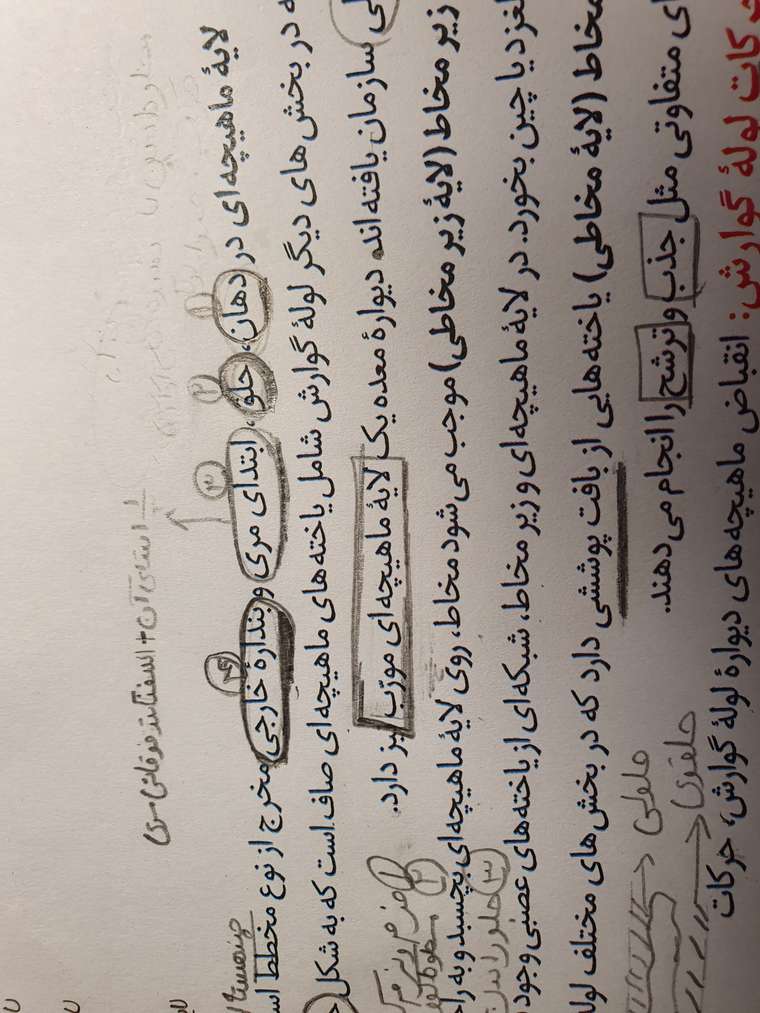 ابتدای آن + اسفنکتر فوقانی مری
لایهٔ ماهیچه ای در دهان، حلق، ابتدای مری و بندارهٔ خارجی مخرج از نوع مخطط
۱ ۲ ۳ ۴
در بخش های دیگر لولهٔ گوارش شامل یاخته های ماهیچه ای صاف است که به شکل
سازمان یافته اند. دیوارهٔ معده یک لایهٔ ماهیچه ای مورّب نیز دارد.
زیر مخاط (لایهٔ زیر مخاطی) موجب می شود مخاط، روی لایهٔ ماهیچه ای بچسبد و به
یا چین بخورد. در لایهٔ ماهیچه ای و زیر مخاط، شبکه ای از یاخته های عصبی وجود
مخاط (لایهٔ مخاطی) یاخته هایی از بافت پوششی دارد که در بخش های مختلف
متفاوتی مثل جذب و ترشح را انجام می دهند.
طولی
حلقوی
لولهٔ گوارش: انقباض ماهیچه های دیوارهٔ لولهٔ گوارش، حرکات